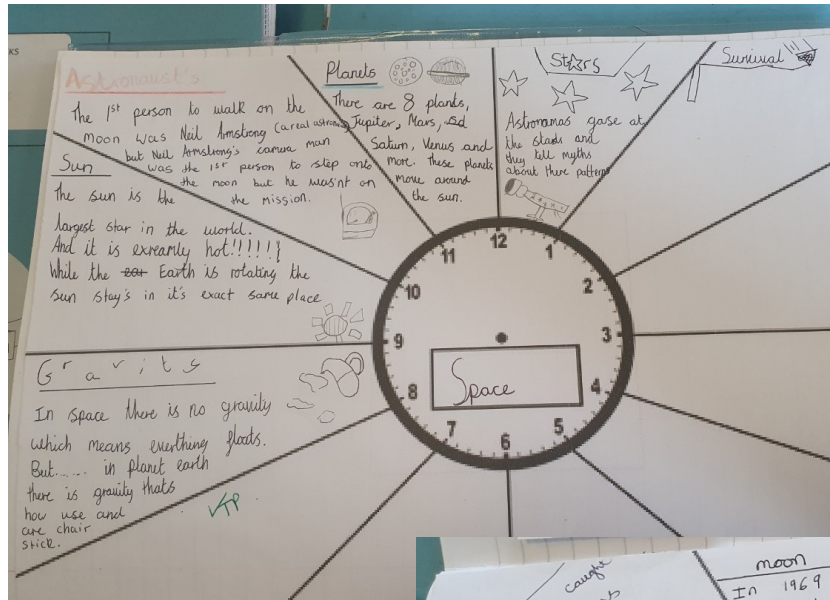 KS
Astronaust's
The 1st person to walk on the
moon was Neil Armstrong (a real astronau
but Neil Armstrong's camera man
was the 1st person to step onto
the moon but he was'nt on
the mission.
Planets
There are 8 plants,
Jupiter, Mars,
Saturn, Venus and
more. These planets
move around
the sun.
Stars
Astronamas gase at
the stards and
they tell myths
about there patterns
Survival
Sun
The sun is the
largest star in the world.
And it is exreamly hot!!!!!!!
While the ear Earth is rotating the
sun stay's in it's exact same place
Gravity
In space there is no gravity
which means everthing floats.
But...... in planet earth
there is gravity thats
how use and
are chair
stick.
VTP
12
1
2
3
4
5
6
7
8
9
10
11
Space
caught
moon
In 1969